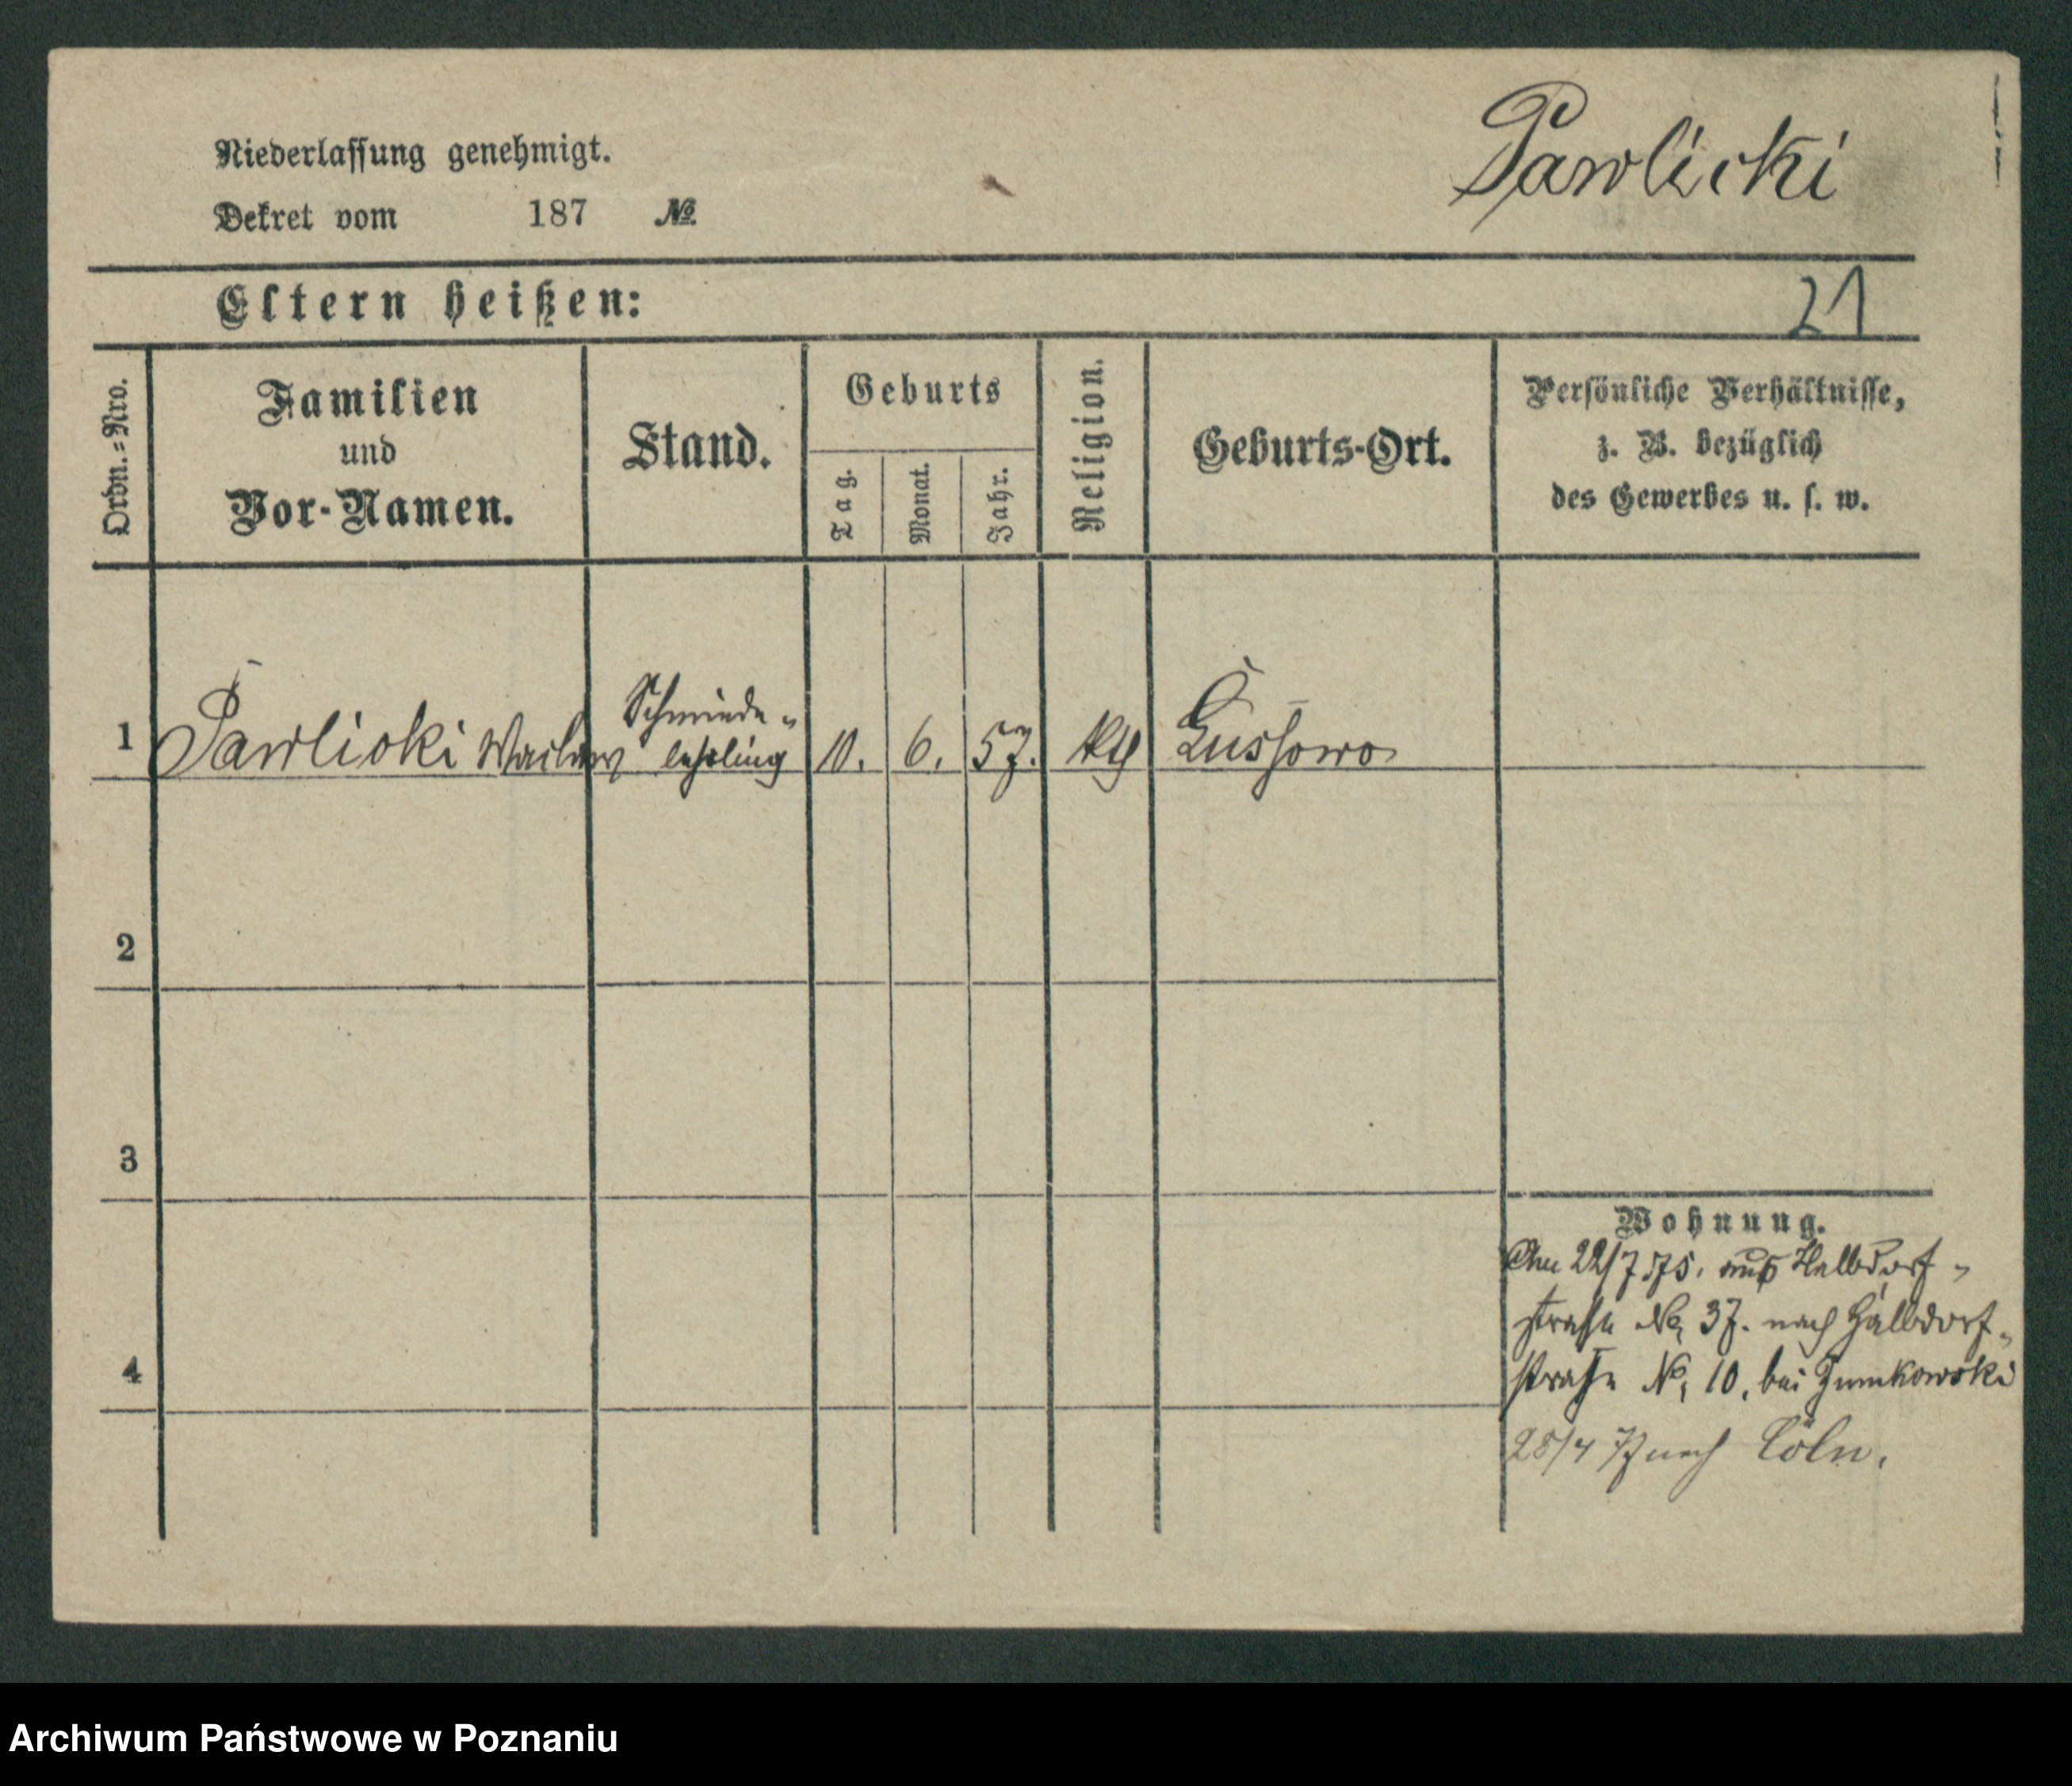 Niederlassung genehmigt.
Dekret vom 187 №
Pawlicki
Eltern heißen:
21
Ordn.=Nro.
Familien
und
Vor-Namen.
Stand.
Geburts
Tag.
Monat.
Jahr.
Religion.
Geburts-Ort.
Persönliche Verhältnisse,
z. B. bezüglich
des Gewerbes u. s. w.
Schmiede-
1 Pawlicki Waclaw lehrling 10. 6. 57. kth Lussowo
2
3
4
Wohnung.
22/7 75. aus Halbdorf-
straße No 37. nach Halbdorf-
straße No 10, bei
28/4 nach Cöln.
Archiwum Państwowe w Poznaniu